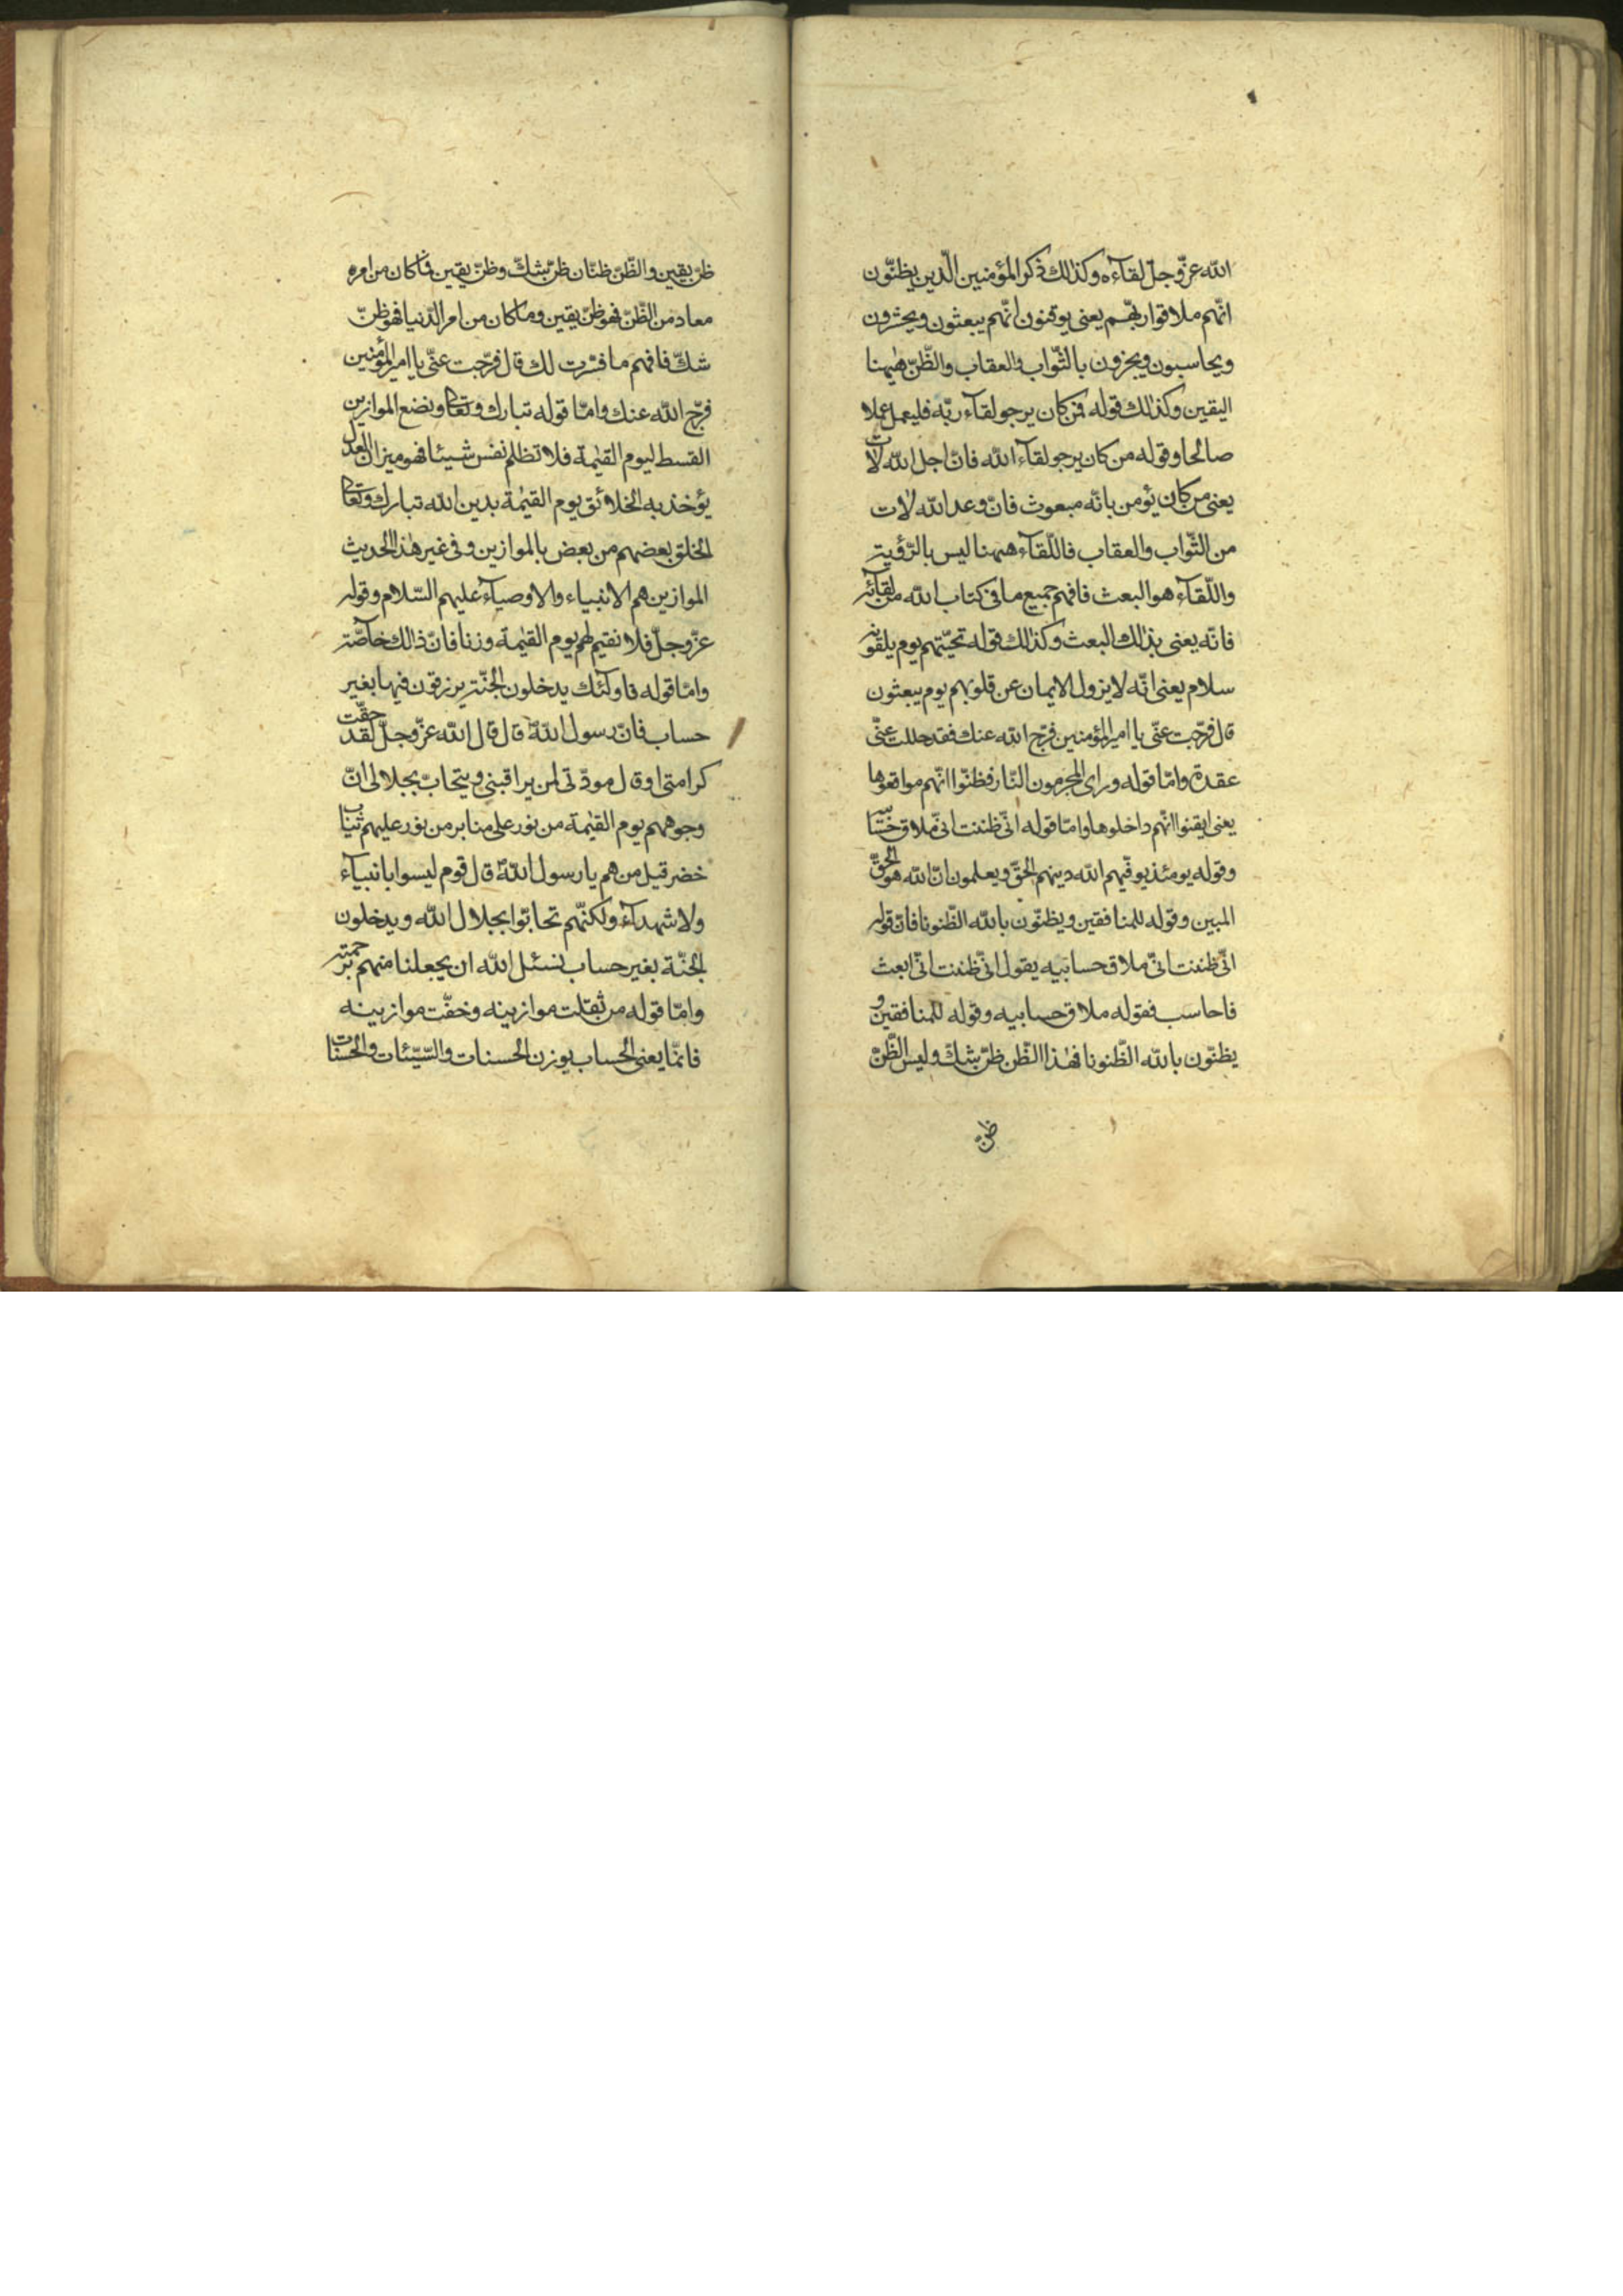 الله عزّ وجلّ لقاءه وكذلك ذكر المؤمنين الّذين يظنّون
انّهم ملاقوا ربّهم يعني يوقنون انّهم يبعثون ويحشرون
ويحاسبون ويجزون بالثّواب والعقاب والظّنّ هيهنا
اليقين وكذلك قوله فمن كان يرجو لقاء ربّه فليعمل عملا
صالحا وقوله من كان يرجو لقاء الله فانّ اجل الله لات
يعني من كان يؤمن بانّه مبعوث فانّ وعد الله لات
من الثّواب والعقاب فاللّقاء ههنا ليس بالرّؤية
واللّقاء هو البعث فافهم جميع ما في كتاب الله من لقائه
فانّه يعني بذلك البعث وكذلك قوله تحيّتهم يوم يلقونه
سلام يعني انّه لا يزول الايمان عن قلوبهم يوم يبعثون
قال فرّجت عنّي يا امير المؤمنين فرّج الله عنك فقد حللت عنّي
عقدة وامّا قوله وراى المجرمون النّار فظنّوا انّهم مواقعوها
يعني ايقنوا انّهم داخلوها وامّا قوله انّي ظننت انّي ملاق
وقوله يومئذ يوفّيهم الله دينهم الحقّ ويعلمون انّ الله هو الحقّ
المبين وقوله للمنافقين ويظنّون بالله الظّنونا فانّ قوله
انّي ظننت انّي ملاق حسابيه يقول انّي ظننت انّي ابعث
فاحاسب فقوله ملاق حسابيه وقوله للمنافقين و
يظنّون بالله الظّنونا فهذا الظّن ظنّ شكّ وليس الظّنّ
ظنّ
ظنّ يقين والظّنّ ظنّان ظنّ شكّ وظنّ يقين فما كان من امر
معاد من الظّنّ فهو ظنّ يقين وما كان من امر الدّنيا فهو ظنّ
شكّ فافهم ما فسّرت لك قال فرّجت عنّي يا امير المؤمنين
فرّج الله عنك وامّا قوله تبارك وتعالى ونضع الموازين
القسط ليوم القيمة فلا تظلم نفس شيئا فهو ميزان العدل
يؤخذ به الخلائق يوم القيمة بدين الله تبارك وتعالى
الخلق بعضهم من بعض بالموازين وفي غير هذا الحديث
الموازين هم الانبياء والاوصياء عليهم السّلام وقوله
عزّ وجلّ فلا نقيم لهم يوم القيمة وزنا فانّ ذلك خاصّة
وامّا قوله فاولئك يدخلون الجنّة يرزقون فيها بغير
حساب فانّ رسول الله قال قال الله عزّ وجلّ لقد حقّت
كرامتي او قال مودّتي لمن يراقبني ويتحابّ بجلالي انّ
وجوههم يوم القيمة من نور على منابر من نور عليهم ثياب
خضر قيل من هم يا رسول الله قال قوم ليسوا بانبياء
ولا شهداء ولكنّهم تحابّوا بجلال الله ويدخلون
الجنّة بغير حساب نسئل الله ان يجعلنا منهم برحمته
وامّا قوله من ثقلت موازينه وخفّت موازينه
فانّما يعني الحساب يوزن الحسنات والسّيّئات والحسنات